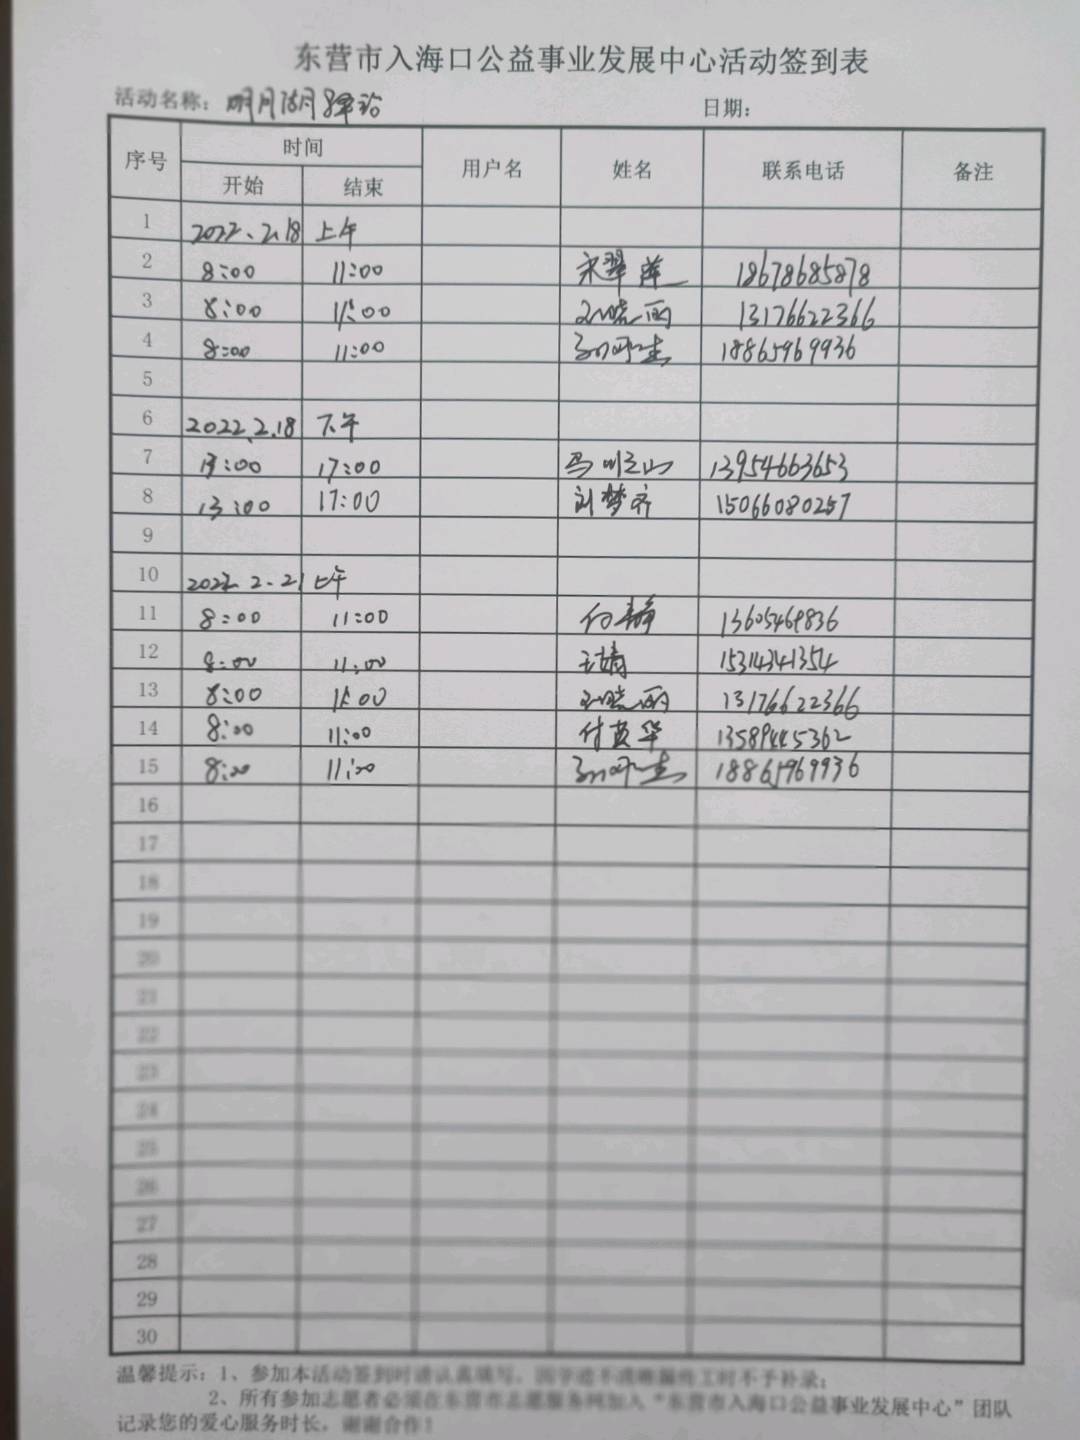 东营市入海口公益事业发展中心活动签到表
活动名称: 明月
日期:
序号 时间 用户名 姓名 联系电话 备注
开始 结束
1 2022.2.18 上午
2 8:00 11:00 宋翠莲 18678685878
3 8:00 11:00 王晓丽 13176622366
4 8:00 11:00 18865969936
5
6 2022.2.18 下午
7 13:00 17:00 13954663653
8 13:00 17:00 刘梦齐 15066080257
9
10 2022.2.21 上午
11 8:00 11:00 付静 13605469836
12 8:00 11:00 王婧 15314341354
13 8:00 11:00 王晓丽 13176622366
14 8:00 11:00 付英华 13589445362
15 8:00 11:00 18865969936
16
17
18
19
20
21
22
23
24
25
26
27
28
29
30
温馨提示: 1、参加本活动签到时请认真填写,因字迹不清晰漏终工时不予补录;
2、所有参加志愿者必须在东营市志愿服务网加入“东营市入海口公益事业发展中心”团队
记录您的爱心服务时长,谢谢合作!